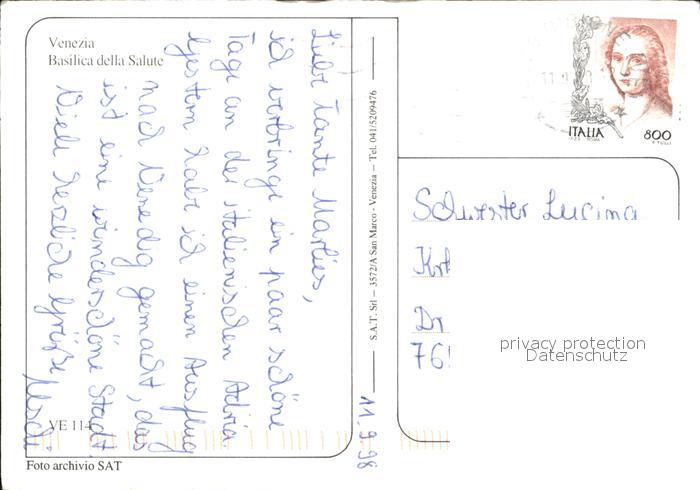 Venezia
Basilica della Salute
Liebe Tante Marlies,
ich verbringe ein paar schöne
Tage an der italienischen Adria
Gestern habe ich einen Ausflug
nach Venedig gemacht, das
ist eine wunderschöne Stadt.
Viele herzliche Grüße
VE 114
Foto archivio SAT
S.A.T. Srl – 3572/A San Marco - Venezia – Tel. 041/5209476
11.9.98
ITALIA
800
Schwester Lucina
Krt
Dr
76
privacy protection
Datenschutz